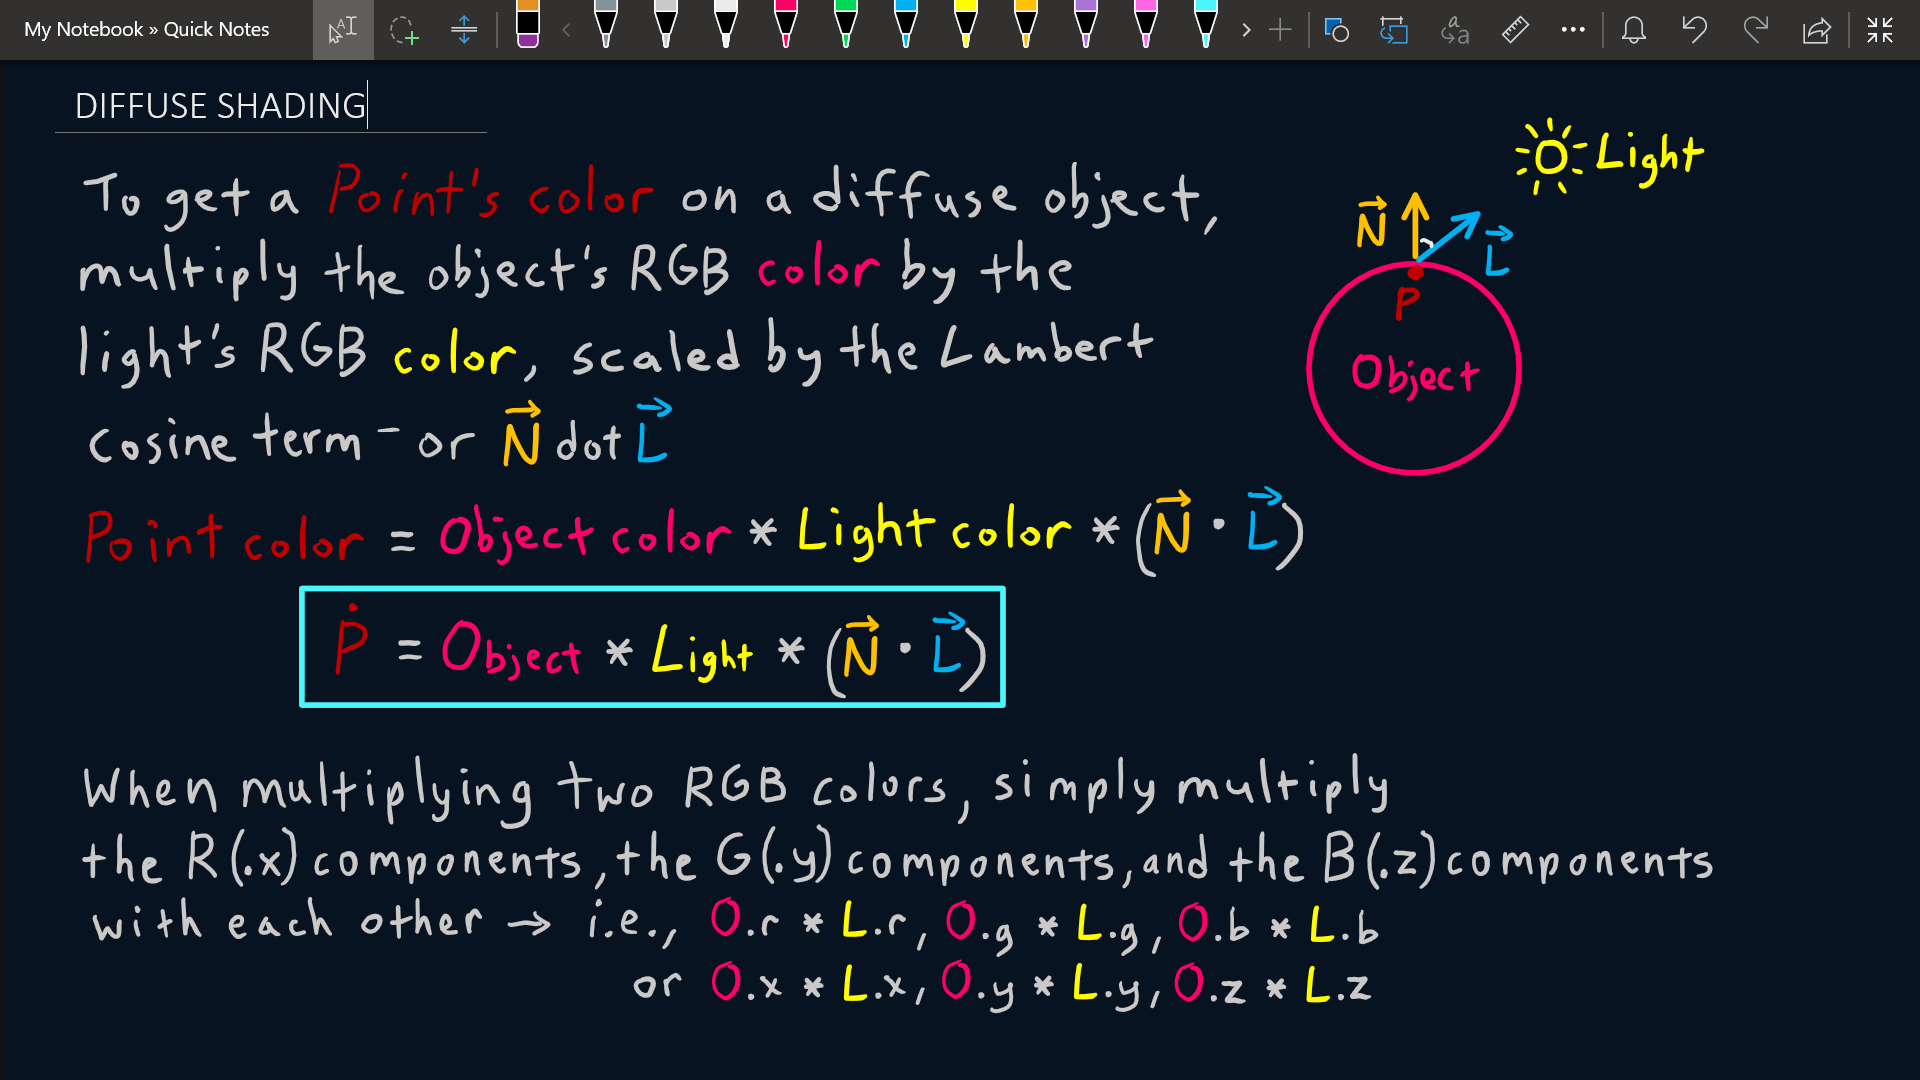 My Notebook » Quick Notes
DIFFUSE SHADING
Light
N
L
P
Object
To get a Point's color on a diffuse object,
multiply the object's RGB color by the
light's RGB color, scaled by the Lambert
cosine term - or N⃗ dot L⃗
Point color = Object color * Light color * (N⃗ · L⃗)
Ṗ = Object * Light * (N⃗ · L⃗)
When multiplying two RGB colors, simply multiply
the R(.x) components, the G(.y) components, and the B(.z) components
with each other → i.e., O.r * L.r, O.g * L.g, O.b * L.b
or O.x * L.x, O.y * L.y, O.z * L.z